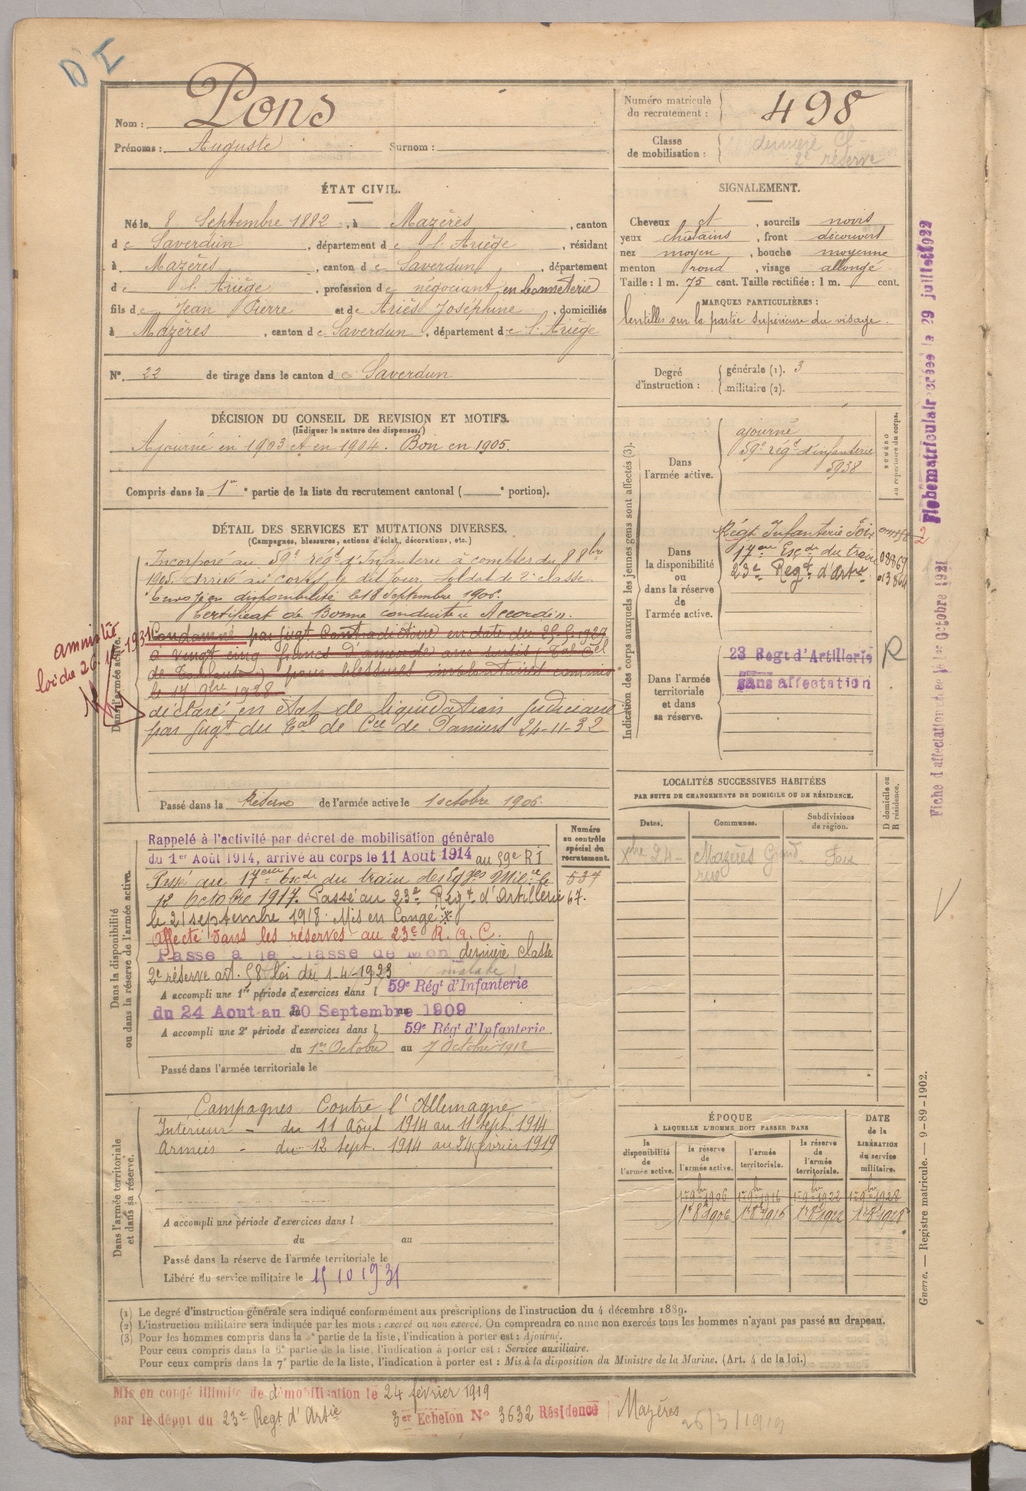 D I
Nom : Pons
Prénoms : Auguste Surnom :
Numéro matricule du recrutement : 498
Classe de mobilisation : dernière Cl
2e réserve
ÉTAT CIVIL.
Né le 8 Septembre 1882, à Mazères, canton
de Saverdun, département de l'Ariège, résidant
à Mazères, canton de Saverdun, département
de l'Ariège, profession de négociant en bonneterie
fils de Jean Pierre et de Ariès Joséphine, domiciliés
à Mazères, canton de Saverdun, département de l'Ariège
N° 22 de tirage dans le canton de Saverdun
SIGNALEMENT.
Cheveux et, sourcils noirs
yeux chatains, front découvert
nez moyen, bouche moyenne
menton rond, visage allongé
Taille : 1 m. 75 cent. Taille rectifiée : 1 m. cent.
MARQUES PARTICULIÈRES :
lentilles sur la partie supérieure du visage.
Degré d'instruction : générale (1). 3
militaire (2).
DÉCISION DU CONSEIL DE REVISION ET MOTIFS.
(Indiquer la nature des dispenses)
Ajourné en 1903 et en 1904. Bon en 1905.
Compris dans la 1re partie de la liste du recrutement cantonal ( e portion).
DÉTAIL DES SERVICES ET MUTATIONS DIVERSES.
(Campagnes, blessures, actions d'éclat, décorations, etc.)
Dans l'armée active.
Incorporé au 59e régt d'Infanterie à compter du 8 8bre
1905. Arrivé au corps le dit jour, soldat de 2e classe.
Envoyé en disponibilité le 18 Septembre 1906.
Certificat de Bonne conduite Accordé.
Condamné par jugt Contradictoire en date du
à vingt cinq francs d'amende avec sursis
pour blessures involontaires commis
le 17 1928
amnistié
loi du 26 1931
déclaré en état de liquidation judiciaire
par jugt du Tal de Cce de Pamiers 24-11-32
Passé dans la Réserve de l'armée active le 1 octobre 1906.
Indication des corps auxquels les jeunes gens sont affectés (3).
NUMÉRO au répertoire du corps.
Dans l'armée active.
ajourné
59e régt d'infanterie
5938
Dans la disponibilité ou dans la réserve de l'armée active.
Régt Infanterie Foix
17eme Esc. du train 03867
23e Regt d'Artie 013864
Dans l'armée territoriale et dans sa réserve.
23 Regt d'Artillerie
sans affectation
R
Fiche matriculaire créée le 29 juillet 1922
Fiche d'affectation créée le 1er Octobre 1921
LOCALITÉS SUCCESSIVES HABITÉES
PAR SUITE DE CHANGEMENTS DE DOMICILE OU DE RÉSIDENCE.
Dates. Communes. Subdivisions de région. D domicile ou R résidence.
Xbre 24 Mazères Grand rue Foix
Dans la disponibilité ou dans la réserve de l'armée active.
Numéro au contrôle spécial du recrutement.
537
67.
Rappelé à l'activité par décret de mobilisation générale
du 1er Août 1914, arrivé au corps le 11 Aout 1914 au 59e RI
Passé au 17eme Esc. du train des Eqges Mili. le
12 Octobre 1917. Passé au 23e Régt d'Artillerie
le 21 septembre 1918. Mis en Congé
Affecté dans les réserves au 23e R.A.C.
Passé à la Classe de Mon dernière classe
2e réserve art. 58 loi du 1-4-1923
A accompli une 1re période d'exercices dans l 59e Régt d'Infanterie
du 24 Aout au 20 Septembre 1909
A accompli une 2e période d'exercices dans l 59e Régt d'Infanterie
du 1er Octobre au 7 Octobre 1912
Passé dans l'armée territoriale le
Dans l'armée territoriale et dans sa réserve.
Campagnes Contre l'Allemagne
Intérieur - du 11 Août 1914 au 11 Sept. 1914
Armées - du 12 Sept. 1914 au 24 février 1919
A accompli une période d'exercices dans l
du au
Passé dans la réserve de l'armée territoriale le
Libéré du service militaire le 15 10 1931
ÉPOQUE
À LAQUELLE L'HOMME DOIT PASSER DANS
la disponibilité de l'armée active. la réserve de l'armée active. l'armée territoriale. la réserve de l'armée territoriale.
DATE de la LIBÉRATION du service militaire.
1er 9bre 1906 1er 9bre 1916 1er 9bre 1922 1er 9bre 1928
1er 8bre 1906 1er 8bre 1916 1er 8bre 1922 1er 8bre 1928
Guerre. — Registre matricule. — 9-89-1902.
(1) Le degré d'instruction générale sera indiqué conformément aux prescriptions de l'instruction du 4 décembre 1889.
(2) L'instruction militaire sera indiquée par les mots : exercé ou non exercé. On comprendra comme non exercés tous les hommes n'ayant pas passé au drapeau.
(3) Pour les hommes compris dans la 2e partie de la liste, l'indication à porter est : Ajourné.
Pour ceux compris dans la 6e partie de la liste, l'indication à porter est : Service auxiliaire.
Pour ceux compris dans la 7e partie de la liste, l'indication à porter est : Mis à la disposition du Ministre de la Marine. (Art. 4 de la loi.)
Mis en congé illimité de démobilisation le 24 février 1919
par le dépôt du 23e Regt d'Artie 3er Echelon N° 3632 Résidence Mazères
26/3/1919